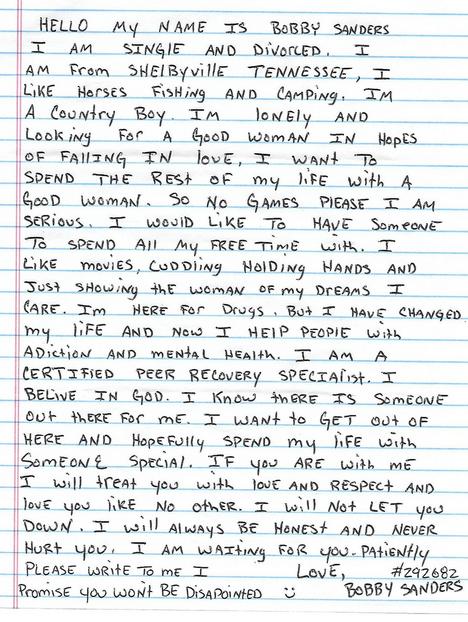 HELLO MY NAME IS BOBBY SANDERS
I AM SINGLE AND DIVORCED. I
AM FROM SHELBYVILLE TENNESSEE, I
LIKE HORSES FISHING AND CAMPING. IM
A COUNTRY BOY. IM LONELY AND
LOOKING FOR A GOOD WOMAN IN HOPES
OF FALLING IN LOVE, I WANT TO
SPEND THE REST OF MY LIFE WITH A
GOOD WOMAN. SO NO GAMES PLEASE I AM
SERIOUS. I WOULD LIKE TO HAVE SOMEONE
TO SPEND ALL MY FREE TIME WITH. I
LIKE MOVIES, CUDDLING HOLDING HANDS AND
JUST SHOWING THE WOMAN OF MY DREAMS I
CARE. IM HERE FOR DRUGS. BUT I HAVE CHANGED
MY LIFE AND NOW I HELP PEOPLE WITH
ADICTION AND MENTAL HEALTH. I AM A
CERTIFIED PEER RECOVERY SPECIALIST. I
BELIVE IN GOD. I KNOW THERE IS SOMEONE
OUT THERE FOR ME. I WANT TO GET OUT OF
HERE AND HOPEFULLY SPEND MY LIFE WITH
SOMEONE SPECIAL. IF YOU ARE WITH ME
I WILL TREAT YOU WITH LOVE AND RESPECT AND
LOVE YOU LIKE NO OTHER. I WILL NOT LET YOU
DOWN. I WILL ALWAYS BE HONEST AND NEVER
HURT YOU. I AM WAITING FOR YOU. PATIENTLY
PLEASE WRITE TO ME I LOVE, #292682
PROMISE YOU WON'T BE DISAPOINTED BOBBY SANDERS